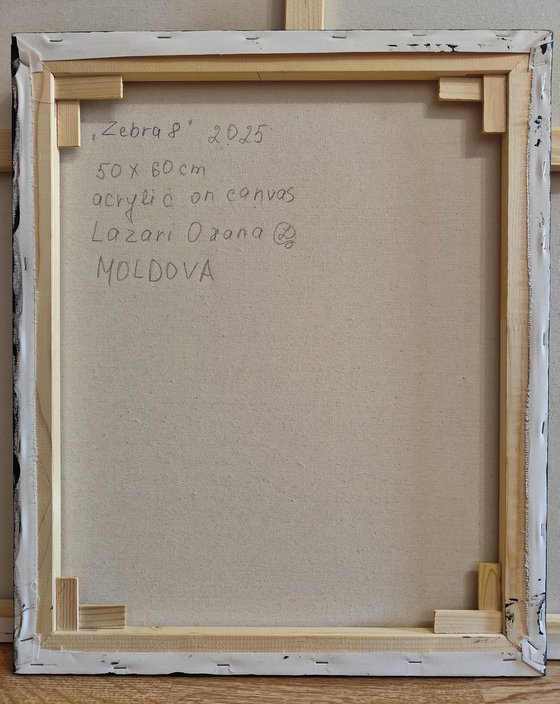 „Zebra 8" 2025
50 x 60 cm
acrylic on canvas
Lazari Oxana
MOLDOVA